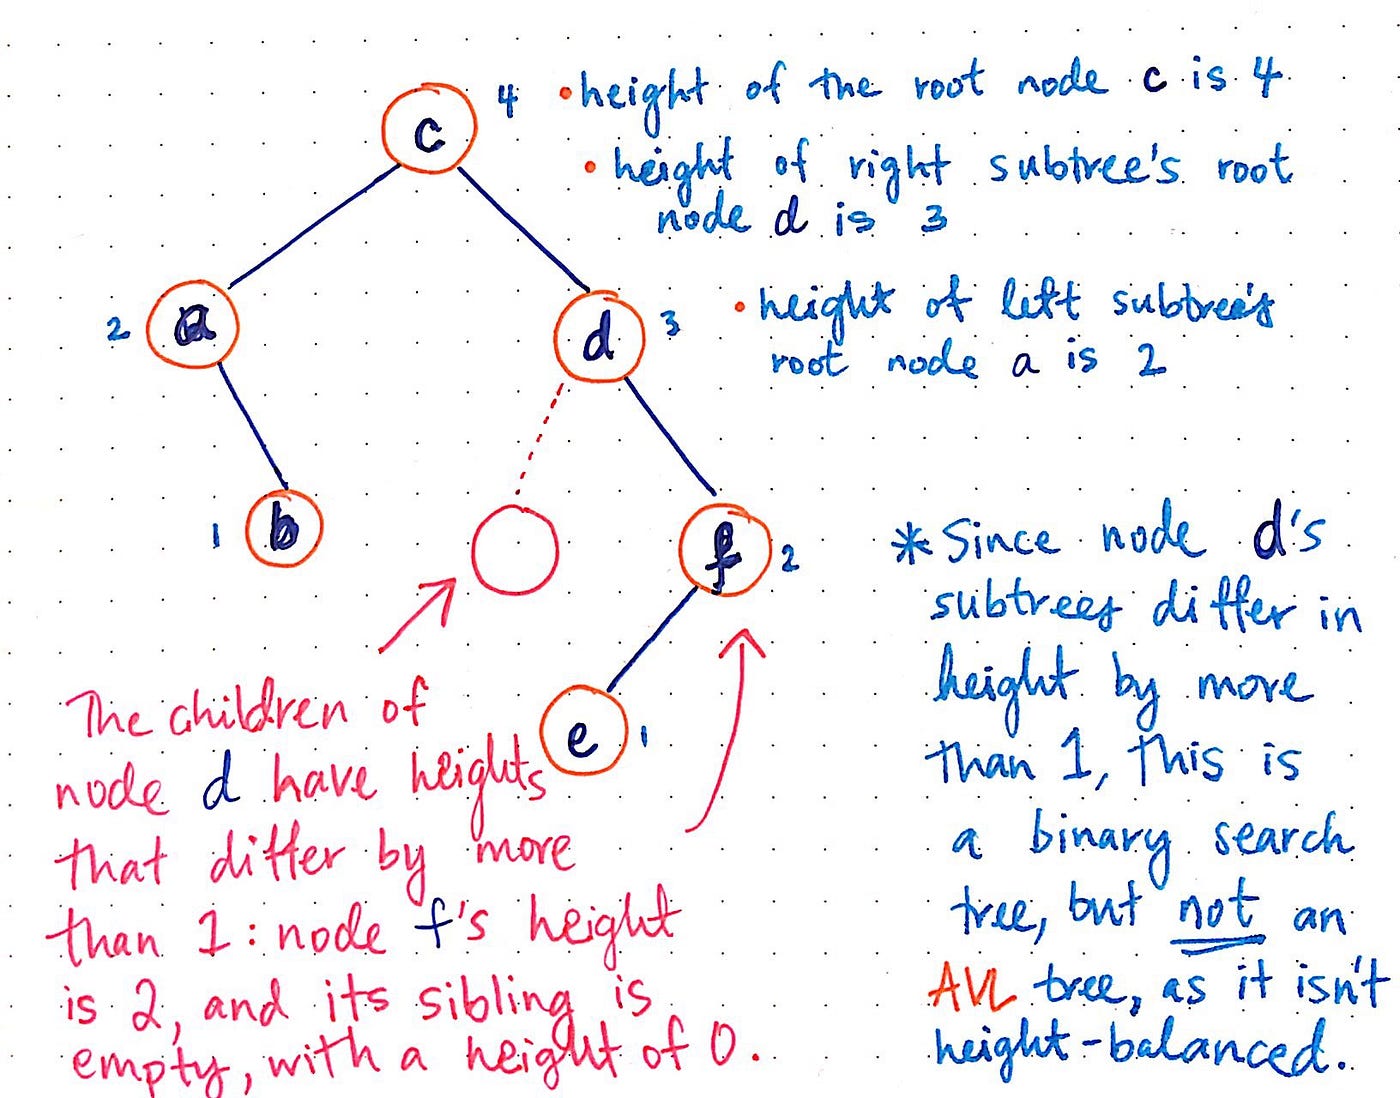 c
4
• height of the root node c is 4
• height of right subtree's root
node d is 3
2
a
d
3
• height of left subtree's
root node a is 2
1
b
f
2
* Since node d's
subtrees differ in
height by more
than 1, this is
a binary search
tree, but not an
AVL tree, as it isn't
height-balanced.
e
1
The children of
node d have heights
that differ by more
than 1: node f's height
is 2, and its sibling is
empty, with a height of 0.